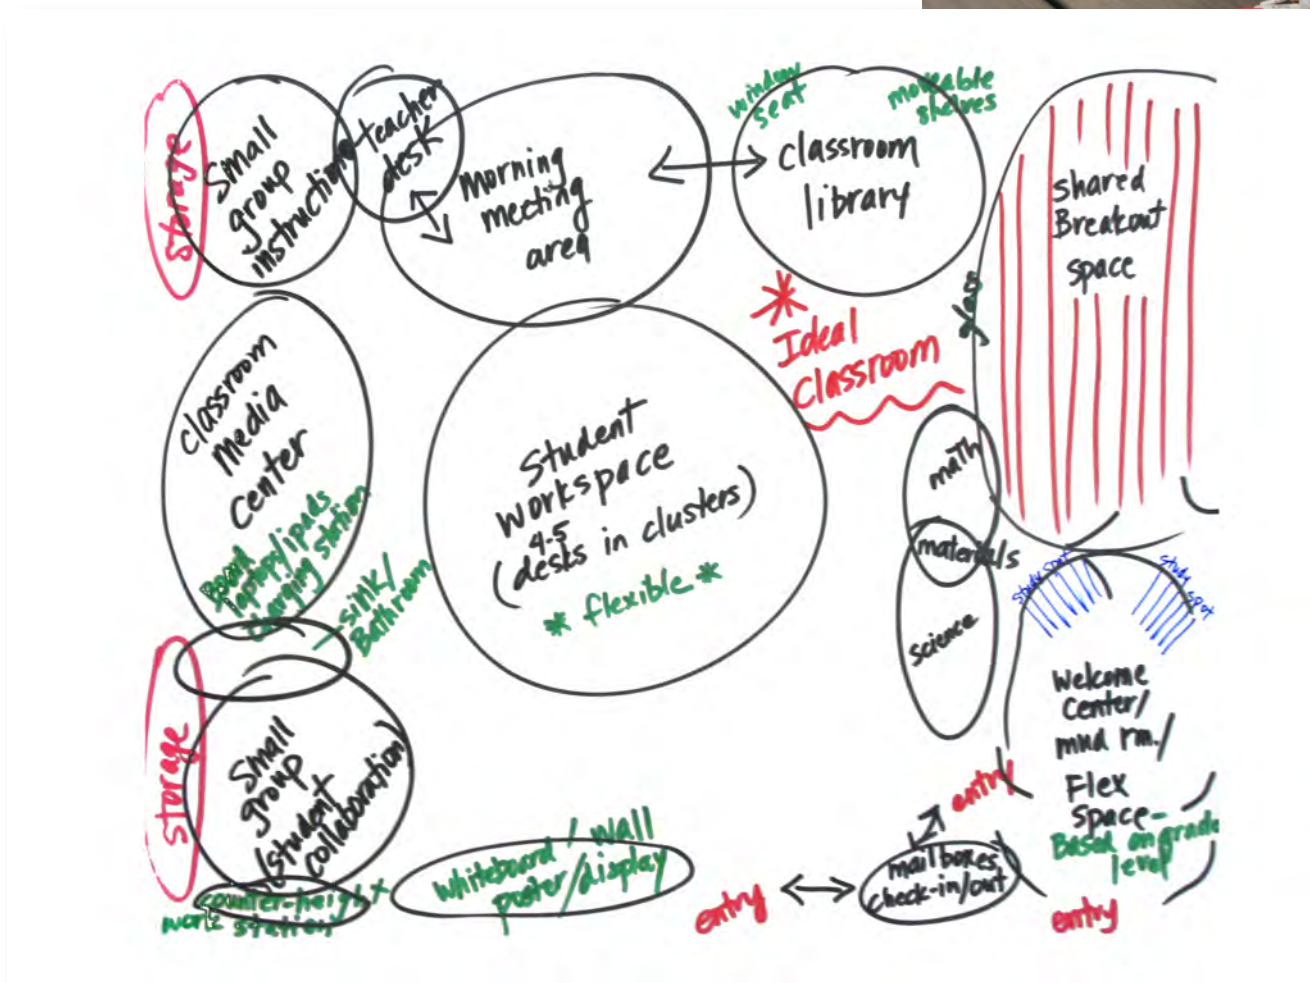 storage
small
group
instruction
teacher
desk
Morning
meeting
area
window
seat
moveable
shelves
classroom
library
shared
Breakout
space
glass
* Ideal
classroom
classroom
media
center
laptops/ipads
charging station
-sink/
Bathroom
student
workspace
4-5
(desks in clusters)
* flexible *
math
materials
science
study spot
study spot
Welcome
center/
mud rm./
Flex
space-
Based on grade
level
entry
storage
small
group
(student
collaboration)
counter-height
work station
whiteboard / wall
poster/display
entry
mailboxes
check-in/out
entry